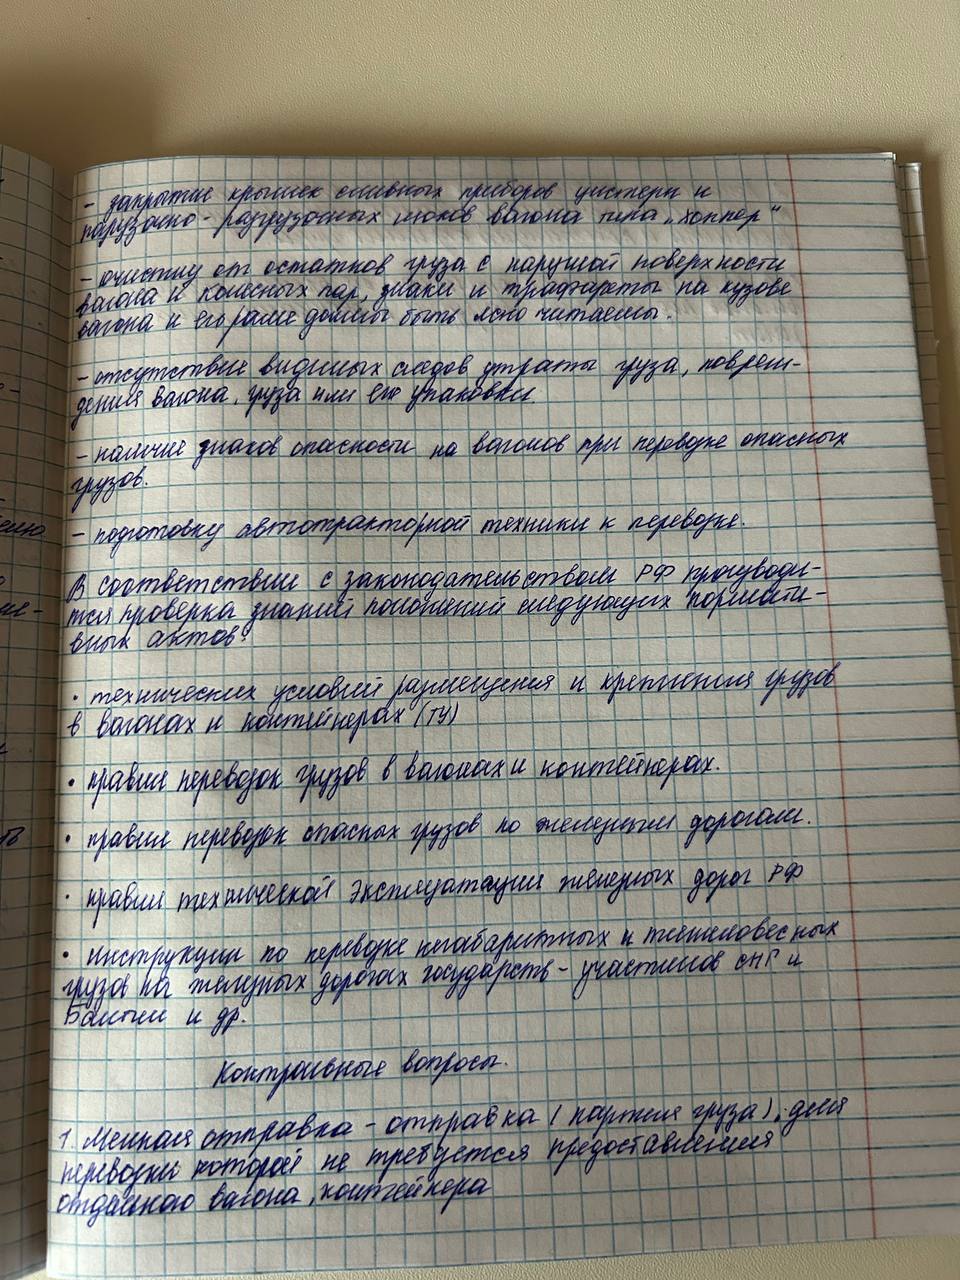 - закрытие крышек сливных приборов цистерн и
погрузочно-разгрузочных люков вагона типа „хоппер"
- очистку от остатков груза с наружной поверхности
вагона и колесных пар, знаки и трафареты на кузове
вагона и его раме должны быть ясно читаемы.
- отсутствие видимых следов утраты груза, повреж-
дения вагона, груза или его упаковки.
- наличие знаков опасности на вагонов при перевозке опасных
грузов.
- подготовку автотракторной техники к перевозке.
В соответствии с законодательством РФ производи-
тся проверка знаний положений следующих нормати-
вных актов:
• технических условий размещения и крепления грузов
в вагонах и контейнерах (ТУ)
• правил перевозок грузов в вагонах и контейнерах.
• правил перевозок опасных грузов по железным дорогам.
• правил технической эксплуатации железных дорог РФ
• инструкции по перевозке негабаритных и тяжеловесных
грузов на железных дорогах государств - участников СНГ и
Балтии и др.
Контрольные вопросы.
1. Мелкая отправка - отправка (партия груза), для
перевозки которой не требуется предоставления
отдельного вагона, контейнера